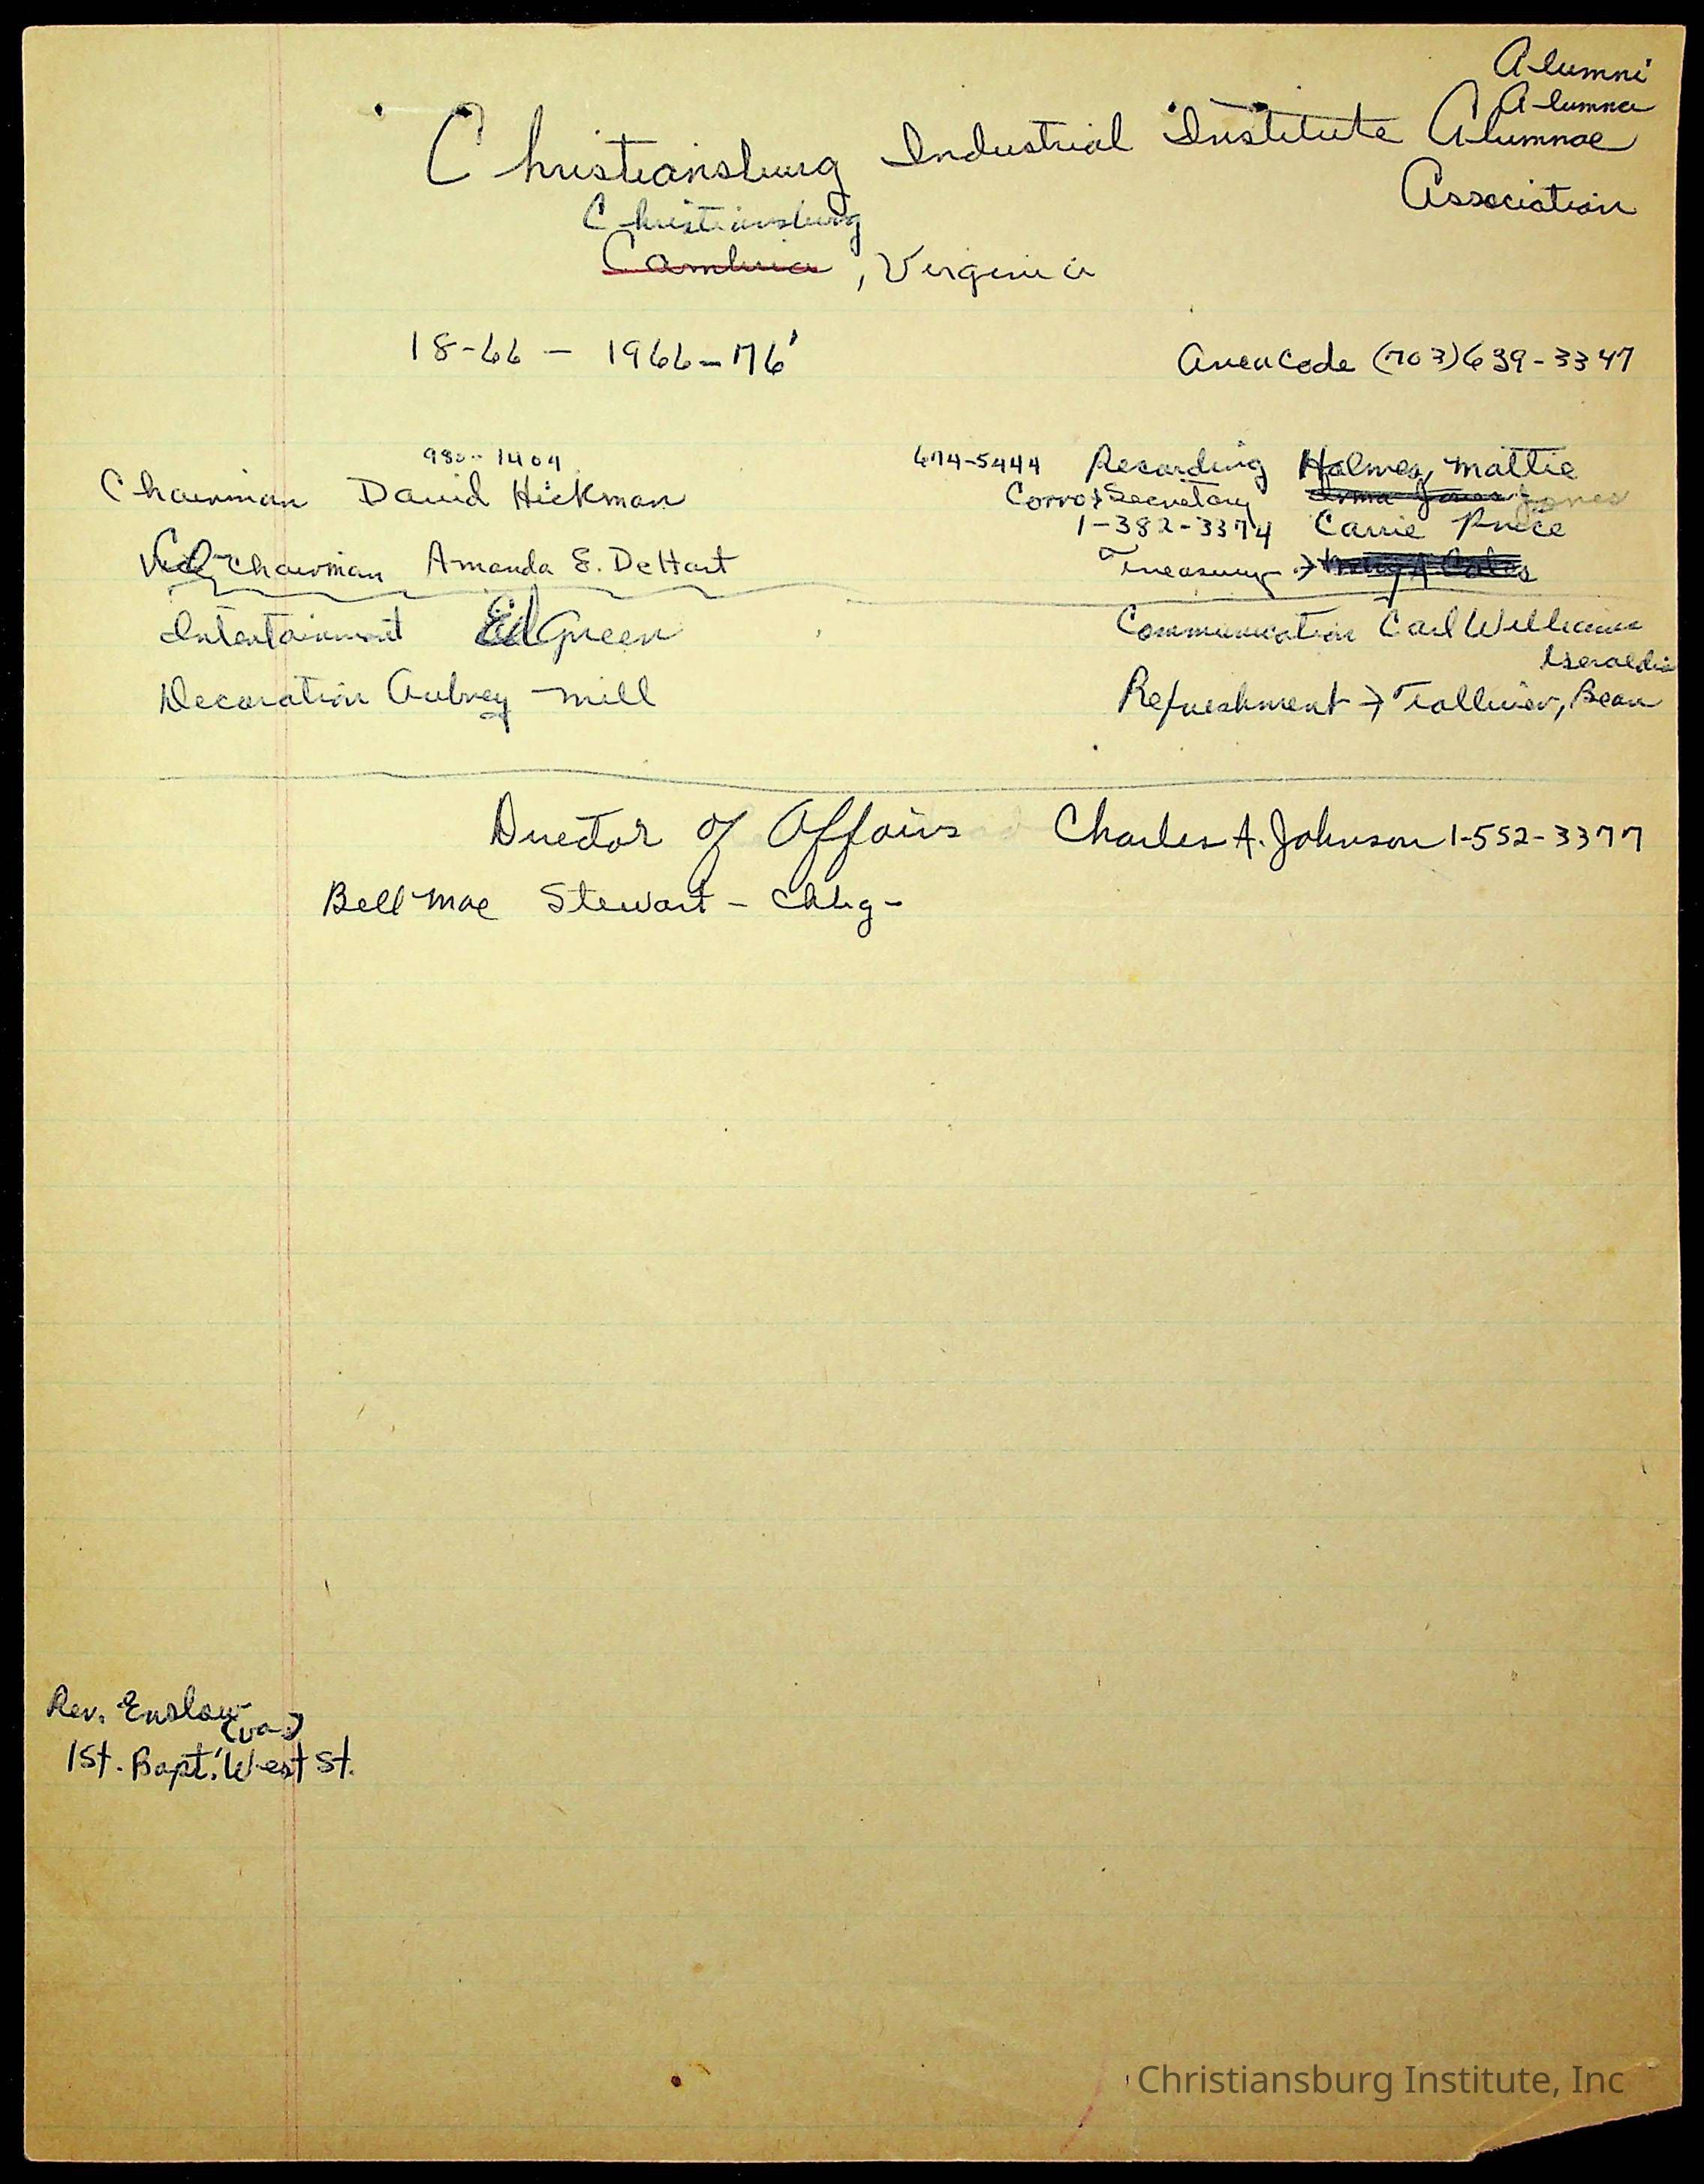 Alumni
Alumna
Christiansburg Industrial Institute Alumnae
Association
Christiansburg
Cambria, Virginia
18-66 - 1966-76'
Area Code (703) 639-3347
980-1404
Chairman David Hickman
Vice Chairman Amanda E. DeHart
674-5444 Recording Holmes, Mattie
Corro & Secretary Irma Jones Jones
1-382-3374 Carrie Price
Treasury →
Intertainment Ed Green
Communication Carl Williams
Decoration Aubrey Mill
Refreshment → Tolliver, Bean
Director of Affairs Charles A. Johnson 1-552-3377
Bell Mae Stewart - Chbg -
Rev. Enslow
(Va)
1st. Bapt. West St.
Christiansburg Institute, Inc